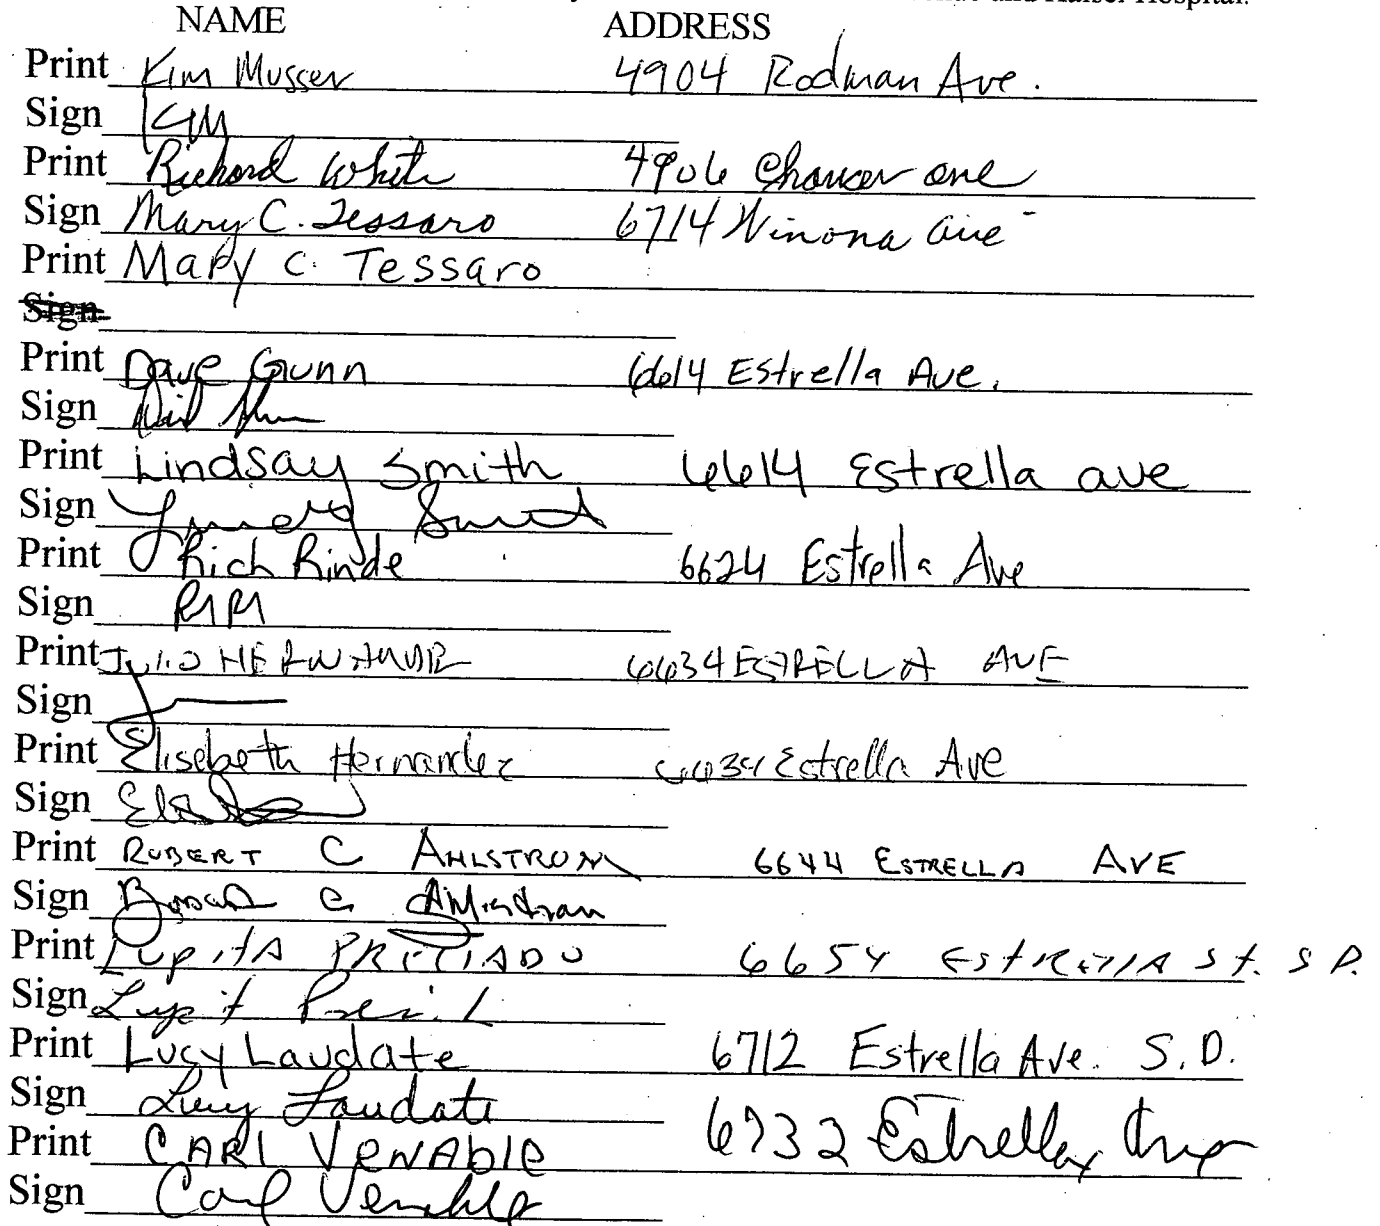 and Kaiser Hospital.
NAME ADDRESS
Print Kim Musser 4904 Rodman Ave.
Sign KM
Print Richard White 4906
Sign Mary C. Tessaro 6714 Winona ave
Print Mary C. Tessaro
Sign
Print Dave Gunn 6614 Estrella Ave.
Sign
Print Lindsay Smith 6614 Estrella ave
Sign Smith
Print Rich Rinde 6624 Estrella Ave
Sign
Print Julio HERNANDEZ 6634 ESTRELLA AVE
Sign
Print Elisebeth Hernandez 6634 Estrella Ave
Sign
Print ROBERT C AHLSTROM 6644 ESTRELLA AVE
Sign
Print LupitA PRECIADO 6654 EstRellA St. S D.
Sign
Print Lucy Laudate 6712 Estrella Ave. S.D.
Sign Lucy Laudate
Print CARl VENAblE 6732 Estrella
Sign Carl Venable